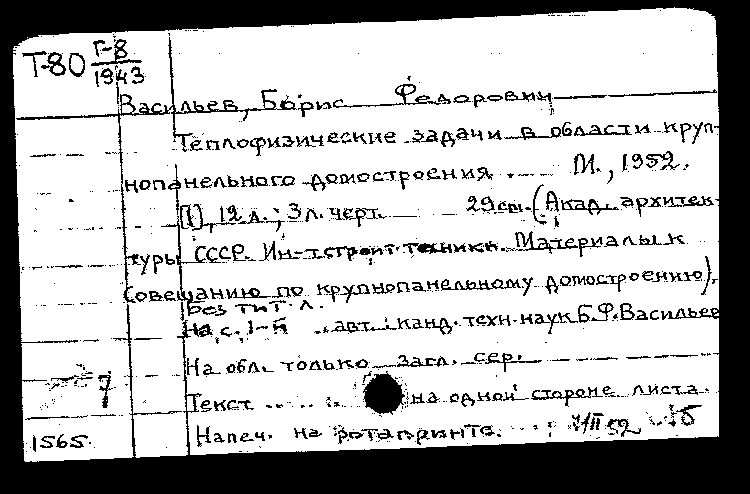 Т-80 Г-8
1943
Васильев, Борис Федорович
Теплофизические задачи в области круп-
нопанельного домостроения. М., 1952.
[1], 12 л.; 3 л. черт. 29 см. (Акад. архитек-
туры СССР. Ин-т строит. техники. Материалы к
совещанию по крупнопанельному домостроению).
Без тит. л.
На с. 1-й авт.: канд. техн. наук Б.Ф. Васильев
На обл. только загл. сер.
Текст на одной стороне листа.
7
1565. Напеч. на ротапринте. II 52